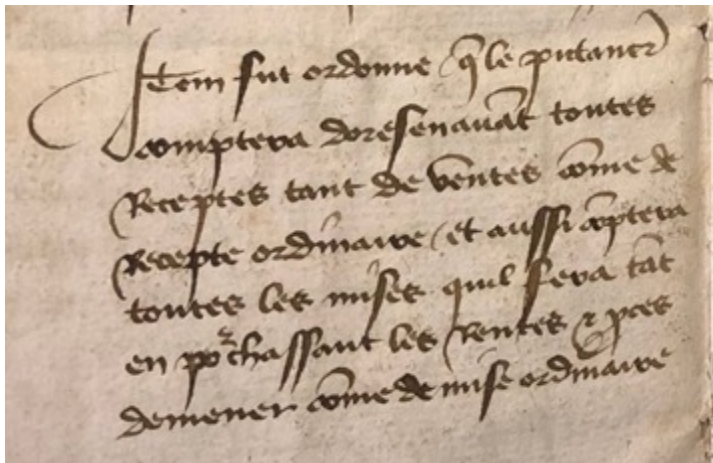 Item fut ordonne q̃ le pitancr̃
comptera doresenauãt toutes
Receptes tant de vẽntes cõme de
Recepte ordinaire / et aussi cõptera
toutes les mises quil fera tãt
en porchassant les Rentes & pces
demener cõme de mise ordinaire